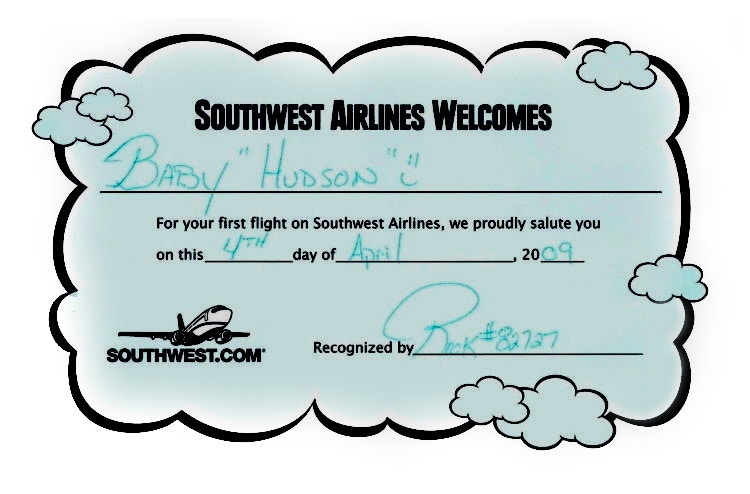 SOUTHWEST AIRLINES WELCOMES
BABY "HUDSON" :)
For your first flight on Southwest Airlines, we proudly salute you
on this 4TH day of April, 2009
SOUTHWEST.COM®
Recognized by Rick #82727